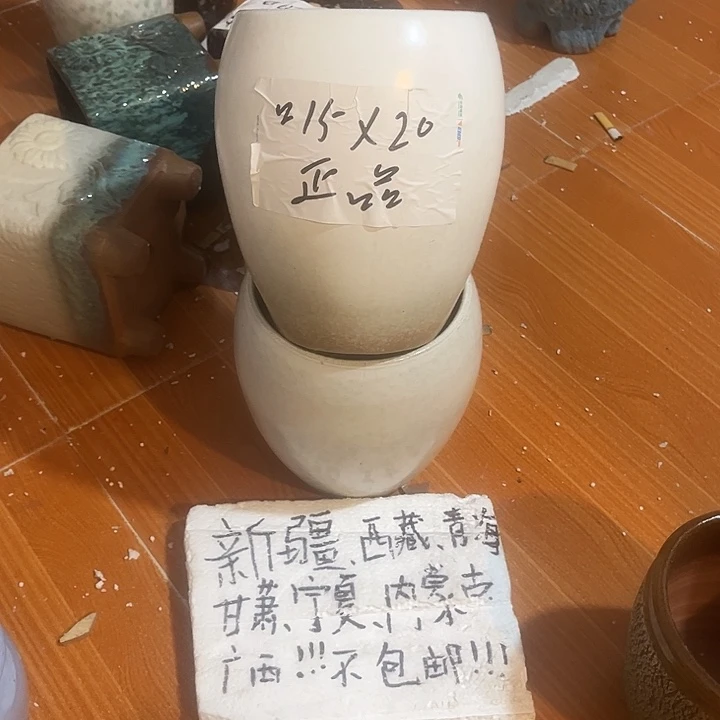 口15×20
正品
新疆、西藏、青海
甘肃、宁夏、内蒙古
广西!!!不包邮!!!